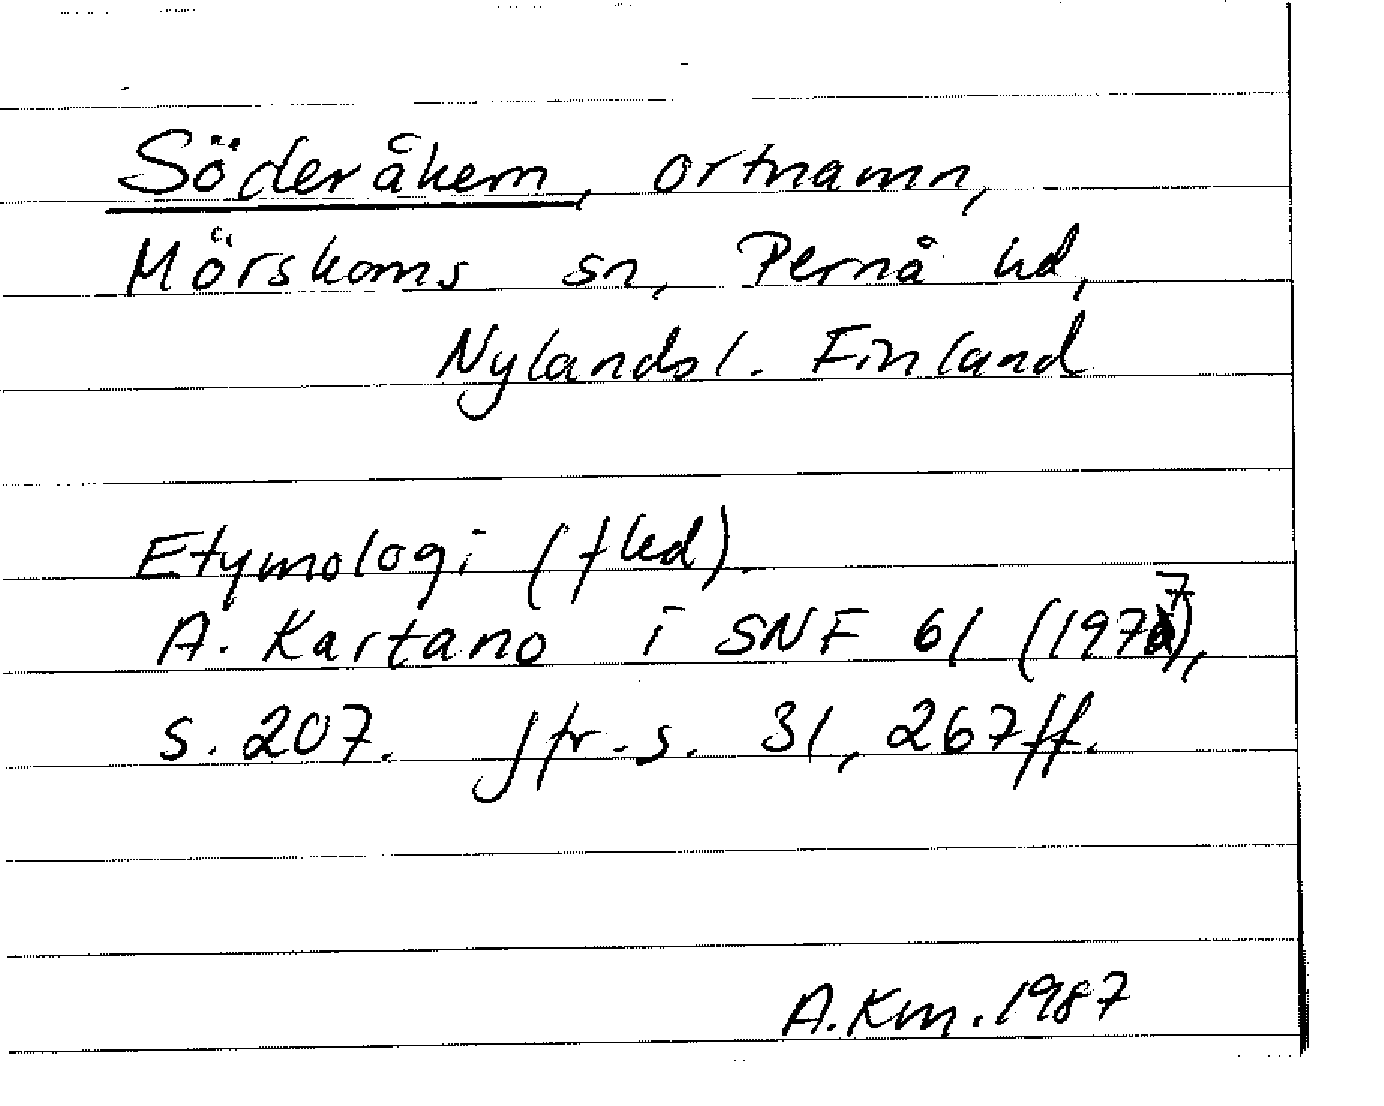 Söderåkern, ortnamn,
Mörskoms sn, Pernå hd,
Nylands l. Finland
Etymologi (fled).
A. Kartano i SNF 61 (1977),
s. 207. Jfr. s. 31, 267 ff.
A. Km. 1987